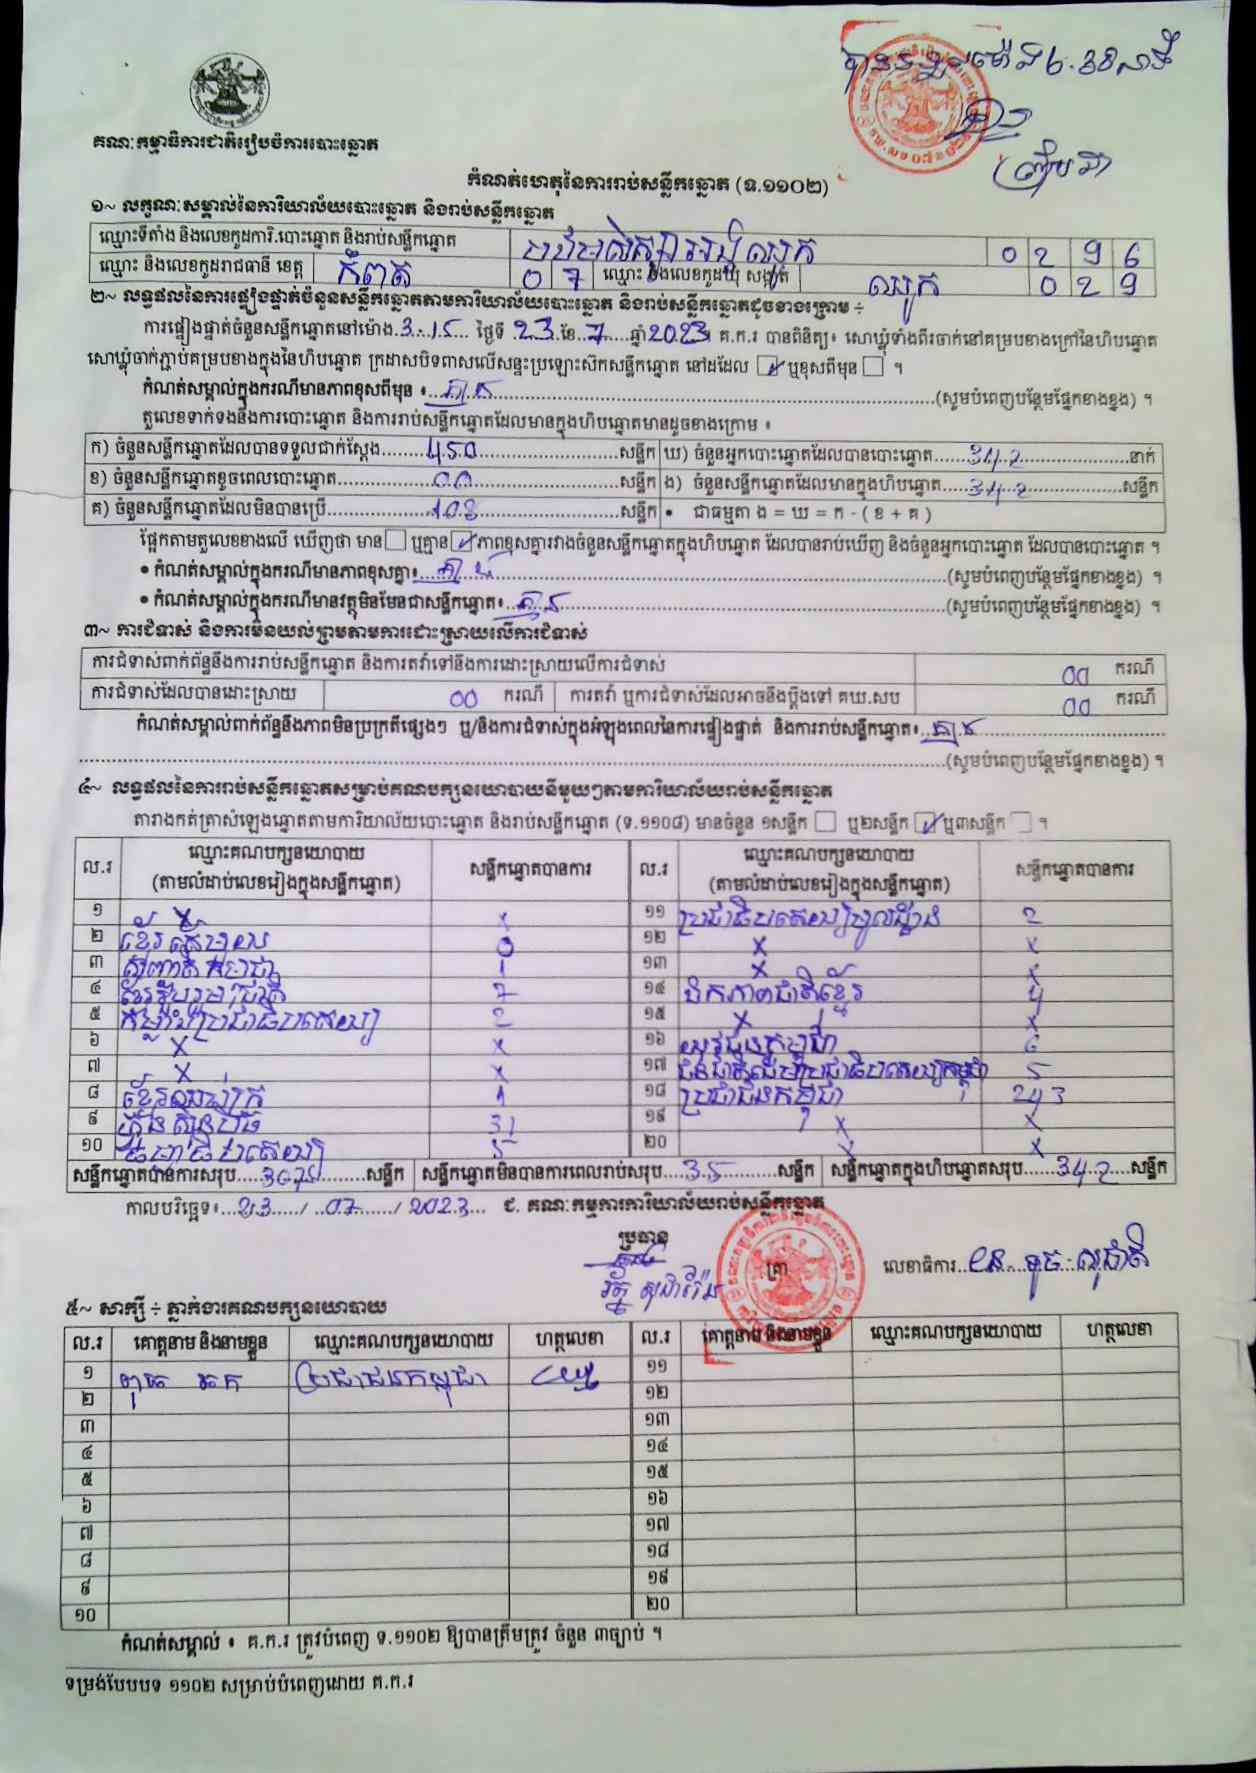 គណៈកម្មាធិការជាតិរៀបចំការបោះឆ្នោត
កំណត់ហេតុនៃការរាប់សន្លឹកឆ្នោត (ទ.១១០២)
១~ លក្ខណៈសម្គាល់នៃការិយាល័យបោះឆ្នោត និងរាប់សន្លឹកឆ្នោត
ឈ្មោះទីតាំង និងលេខកូដការិ.បោះឆ្នោត និងរាប់សន្លឹកឆ្នោត 0 2 9 6
ឈ្មោះ និងលេខកូដរាជធានី ខេត្ត កំពត 0 7 ឈ្មោះ និងលេខកូដឃុំ សង្កាត់ ល្បើក 0 2 9
២~ លទ្ធផលនៃការផ្ទៀងផ្ទាត់ចំនួនសន្លឹកឆ្នោតតាមការិយាល័យបោះឆ្នោត និងរាប់សន្លឹកឆ្នោតដូចខាងក្រោម ÷
ការផ្ទៀងផ្ទាត់ចំនួនសន្លឹកឆ្នោតនៅម៉ោង 3:15 ថ្ងៃទី 23 ខែ 7 ឆ្នាំ 2023 គ.ក.រ បានពិនិត្យ៖ សោឃ្មុំទាំងពីរចាក់នៅគម្របខាងក្រៅនៃហិបឆ្នោត
សោឃ្មុំចាក់ភ្ជាប់គម្របខាងក្នុងនៃហិបឆ្នោត ក្រដាសបិទពាសលើសន្ទះប្រឡោះស៊កសន្លឹកឆ្នោត នៅដដែល ☑ ឬខុសពីមុន ☐ ។
កំណត់សម្គាល់ក្នុងករណីមានភាពខុសពីមុន ៖ គ្មាន (សូមបំពេញបន្ថែមផ្នែកខាងខ្នង) ។
តួលេខទាក់ទងនឹងការបោះឆ្នោត និងការរាប់សន្លឹកឆ្នោតដែលមានក្នុងហិបឆ្នោតមានដូចខាងក្រោម ៖
ក) ចំនួនសន្លឹកឆ្នោតដែលបានទទួលជាក់ស្តែង 450 សន្លឹក ឃ) ចំនួនអ្នកបោះឆ្នោតដែលបានបោះឆ្នោត 342 នាក់
ខ) ចំនួនសន្លឹកឆ្នោតខូចពេលបោះឆ្នោត 00 សន្លឹក ង) ចំនួនសន្លឹកឆ្នោតដែលមានក្នុងហិបឆ្នោត 342 សន្លឹក
គ) ចំនួនសន្លឹកឆ្នោតដែលមិនបានប្រើ 108 សន្លឹក • ជាធម្មតា ង = ឃ = ក - ( ខ + គ )
ផ្អែកតាមតួលេខខាងលើ ឃើញថា មាន ☐ ឬគ្មាន ☑ ភាពខុសគ្នារវាងចំនួនសន្លឹកឆ្នោតក្នុងហិបឆ្នោត ដែលបានរាប់ឃើញ និងចំនួនអ្នកបោះឆ្នោត ដែលបានបោះឆ្នោត ។
• កំណត់សម្គាល់ក្នុងករណីមានភាពខុសគ្នា៖ គ្មាន (សូមបំពេញបន្ថែមផ្នែកខាងខ្នង) ។
• កំណត់សម្គាល់ក្នុងករណីមានវត្ថុមិនមែនជាសន្លឹកឆ្នោត៖ គ្មាន (សូមបំពេញបន្ថែមផ្នែកខាងខ្នង) ។
៣~ ការជំទាស់ និងការមិនយល់ព្រមតាមការដោះស្រាយលើការជំទាស់
ការជំទាស់ពាក់ព័ន្ធនឹងការរាប់សន្លឹកឆ្នោត និងការតវ៉ាទៅនឹងការដោះស្រាយលើការជំទាស់ 00 ករណី
ការជំទាស់ដែលបានដោះស្រាយ 00 ករណី ការតវ៉ា ឬការជំទាស់ដែលអាចនឹងប្តឹងទៅ គឃ.សប 00 ករណី
កំណត់សម្គាល់ពាក់ព័ន្ធនឹងភាពមិនប្រក្រតីផ្សេងៗ ឬ/និងការជំទាស់ក្នុងអំឡុងពេលនៃការផ្ទៀងផ្ទាត់ និងការរាប់សន្លឹកឆ្នោត៖ គ្មាន
(សូមបំពេញបន្ថែមផ្នែកខាងខ្នង) ។
៤~ លទ្ធផលនៃការរាប់សន្លឹកឆ្នោតសម្រាប់គណបក្សនយោបាយនីមួយៗតាមការិយាល័យរាប់សន្លឹកឆ្នោត
តារាងកត់ត្រាសំឡេងឆ្នោតតាមការិយាល័យបោះឆ្នោត និងរាប់សន្លឹកឆ្នោត (ទ.១១០៨) មានចំនួន ១សន្លឹក ☐ ឬ២សន្លឹក ☑ ឬ៣សន្លឹក ☐ ។
ល.រ ឈ្មោះគណបក្សនយោបាយ (តាមលំដាប់លេខរៀងក្នុងសន្លឹកឆ្នោត) សន្លឹកឆ្នោតបានការ ល.រ ឈ្មោះគណបក្សនយោបាយ (តាមលំដាប់លេខរៀងក្នុងសន្លឹកឆ្នោត) សន្លឹកឆ្នោតបានការ
១ x x ១១ ប្រជាធិបតេយ្យមូលដ្ឋាន 2
២ ខ្មែរ 0 ១២ x x
៣ កម្ពុជា 1 ១៣ x x
៤ ខ្មែររួបរួមជាតិ 7 ១៤ ឯកភាពជាតិខ្មែរ 4
៥ កម្លាំងប្រជាធិបតេយ្យ 2 ១៥ x x
៦ x x ១៦ យុវជនកម្ពុជា 6
៧ x x ១៧ ជនជាតិដើមប្រជាធិបតេយ្យកម្ពុជា 5
៨ ខ្មែរឈប់ក្រ 1 ១៨ ប្រជាជនកម្ពុជា 243
៩ ហ្វ៊ុនស៊ិនប៉ិច 31 ១៩ x x
១០ ធម្មាធិបតេយ្យ 5 ២០ x x
សន្លឹកឆ្នោតបានការសរុប 307 សន្លឹក សន្លឹកឆ្នោតមិនបានការពេលរាប់សរុប 35 សន្លឹក សន្លឹកឆ្នោតក្នុងហិបឆ្នោតសរុប 342 សន្លឹក
កាលបរិច្ឆេទ៖ 23 / 07 / 2023 ជ. គណៈកម្មការការិយាល័យរាប់សន្លឹកឆ្នោត
ប្រធាន
ត្រា
លេខាធិការ
៥~ សាក្សី ÷ ភ្នាក់ងារគណបក្សនយោបាយ
ល.រ គោត្តនាម និងនាមខ្លួន ឈ្មោះគណបក្សនយោបាយ ហត្ថលេខា ល.រ គោត្តនាម និងនាមខ្លួន ឈ្មោះគណបក្សនយោបាយ ហត្ថលេខា
១ ប្រជាជនកម្ពុជា ១១
២ ១២
៣ ១៣
៤ ១៤
៥ ១៥
៦ ១៦
៧ ១៧
៨ ១៨
៩ ១៩
១០ ២០
កំណត់សម្គាល់ ៖ គ.ក.រ ត្រូវបំពេញ ទ.១១០២ ឱ្យបានត្រឹមត្រូវ ចំនួន ៣ច្បាប់ ។
ទម្រង់បែបបទ ១១០២ សម្រាប់បំពេញដោយ គ.ក.រ